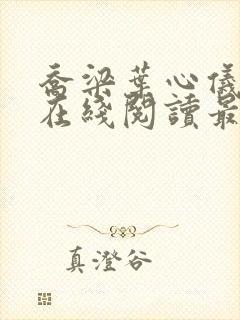 喬梁葉心儀
在綫閱讀最
真澄谷